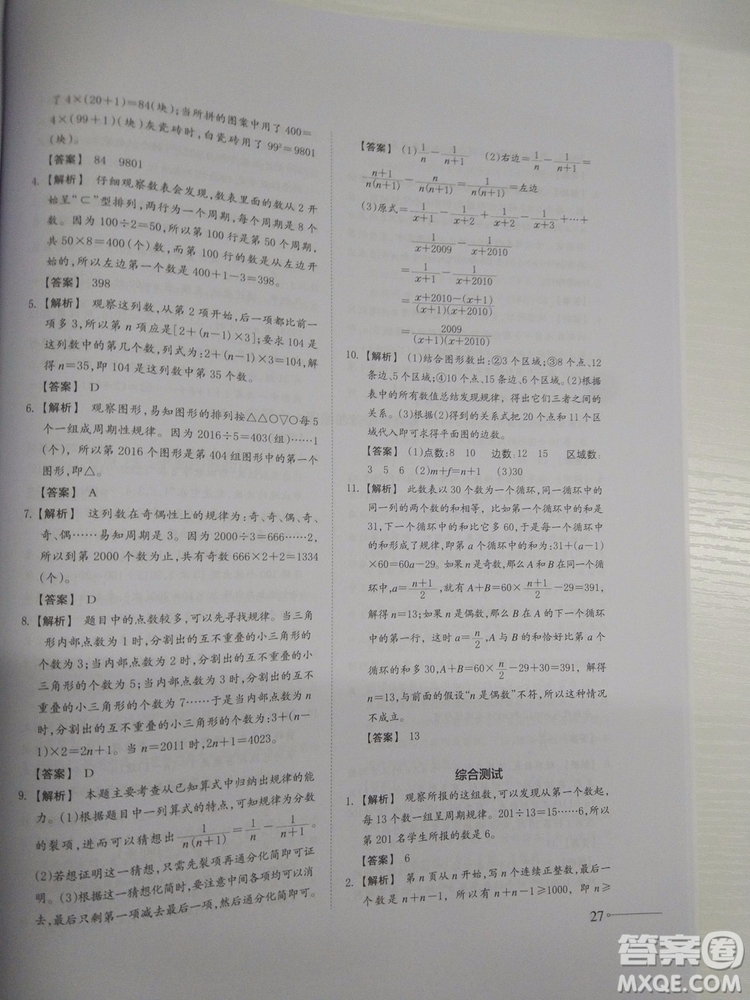 了 4×(20+1)=84(块);当所拼的图案中用了 400=
4×(99+1)(块)灰瓷砖时,白瓷砖用了 99²=9801
(块)。
【答案】 84 9801
4. 【解析】 仔细观察数表会发现,数表里面的数从 2 开
始呈“⊂”型排列,两行为一个周期,每个周期是 8 个
数。因为 100÷2=50,所以第 100 行是第 50 个周期,
共 50×8=400(个)数,而第 100 行是从右边第一个开
始的,所以左边第一个数是 400+1-3=398。
【答案】 398
5. 【解析】 观察这列数,从第 2 项开始,后一项都比前一
项多 3,所以第 n 项应是[2+(n-1)×3];要求 104 是
这列数中的第几个数,列式为:2+(n-1)×3=104,解
得 n=35,即 104 是这列数中的第 35 个数。
【答案】 D
6. 【解析】 观察图形,易知图形的排列按△△○▽○每 5
个一组成周期性规律。因为 2016÷5=403(组)……1
(个),所以第 2016 个图形是第 404 组图形中的第一个
图形,即△。
【答案】 A
7. 【解析】 这列数在奇偶性上的规律为:奇、奇、偶、奇、
奇、偶……易知周期是 3。因为 2000÷3=666……2,
所以到第 2000 个数为止,共有奇数 666×2+2=1334
(个)。
【答案】 D
8. 【解析】 题目中的点数较多,可以先寻找规律。当三角
形内部点数为 1 时,分割出的互不重叠的小三角形的
个数为 3;当内部点数为 2 时,分割出的互不重叠的小
三角形的个数为 5;当内部点数为 3 时,分割出的互不
重叠的小三角形的个数为 7……于是当三角形内部点
数为 n 时,分割出的互不重叠的小三角形的个数为:3+(n-
1)×2=2n+1。当 n=2011 时,2n+1=4023。
【答案】 D
9. 【解析】 本题主要考查从已知算式中归纳出规律的能
力。(1)根据题目中一列算式的特点,可猜想分数系列
的裂项,由此可以猜想出 1/(n(n+1)) = 1/n - 1/(n+1)。
(2)若想证明这一猜想,只需先裂项再通分化简即可证
明。(3)根据这一猜想,要注意裂项后中间部分可以消
去,最后只剩第一项减去最后一项,再通分化简即可。
【答案】 (1) 1/n - 1/(n+1) (2)右边= 1/n - 1/(n+1) =
(n+1)/(n(n+1)) - n/(n(n+1)) = 1/(n(n+1)) =左边
(3)原式= 1/(x+1) - 1/(x+2) + 1/(x+2) - 1/(x+3) +…+
1/(x+2009) - 1/(x+2010)
= 1/(x+1) - 1/(x+2010)
= (x+2010-(x+1))/((x+1)(x+2010))
= 2009/((x+1)(x+2010))
10. 【解析】 (1)结合图形数出:②3 个区域;③8 个点、12
条边、5 个区域;④10 个点、15 条边、6 个区域。(2)根据
表中的所有数值总结发现规律,得出它们三者之间的
关系。(3)根据(2)得到的关系式把 20 个点和 11 个区
域代入即可求得平面图的边数。
【答案】 (1)点数:8 10 边数:12 15 区域数:
3 5 6 (2)m+f=n+1 (3)30
11. 【解析】 此数表以 30 个数为一个循环,同一个循环中
的同一列的两个数的和相等,比如,第一个循环中的和
是 31,第二个循环中的和比它多 60,以后每个循环中
的和依次多 60,形成了规律,即第 a 个循环中的和为:
31+(a-1)×60=60a-29。如果 n 是奇数,在同一个循
环中,a= (n+1)/2 ,就有 A+B=60× (n+1)/2 -29=391,
解得 n=13;如果 n 是偶数,那么 B 在 A 的下一个循环
中的第一行,这样 a= n/2 ,A 与 B 的和比同一循环中的
和多 30,即 A+B=60× n/2 -29+30=391,解得
n=13,与前面的假设“n 是偶数”不符,所以这种情况
不成立。
【答案】 13
综合测试
1. 【解析】 观察所报的这组数,可以发现从第一个数起,
每 13 个数一组呈周期规律。201÷13=15……6,所以
第 201 名学生所报的数是 6。
【答案】 6
2. 【解析】 第 n 页从 n 开始,写 n 个连续正整数,最后一
个数是 n+n-1,所以 n+n-1≥1000,即 n≥
27
答案圈
MXQE.COM